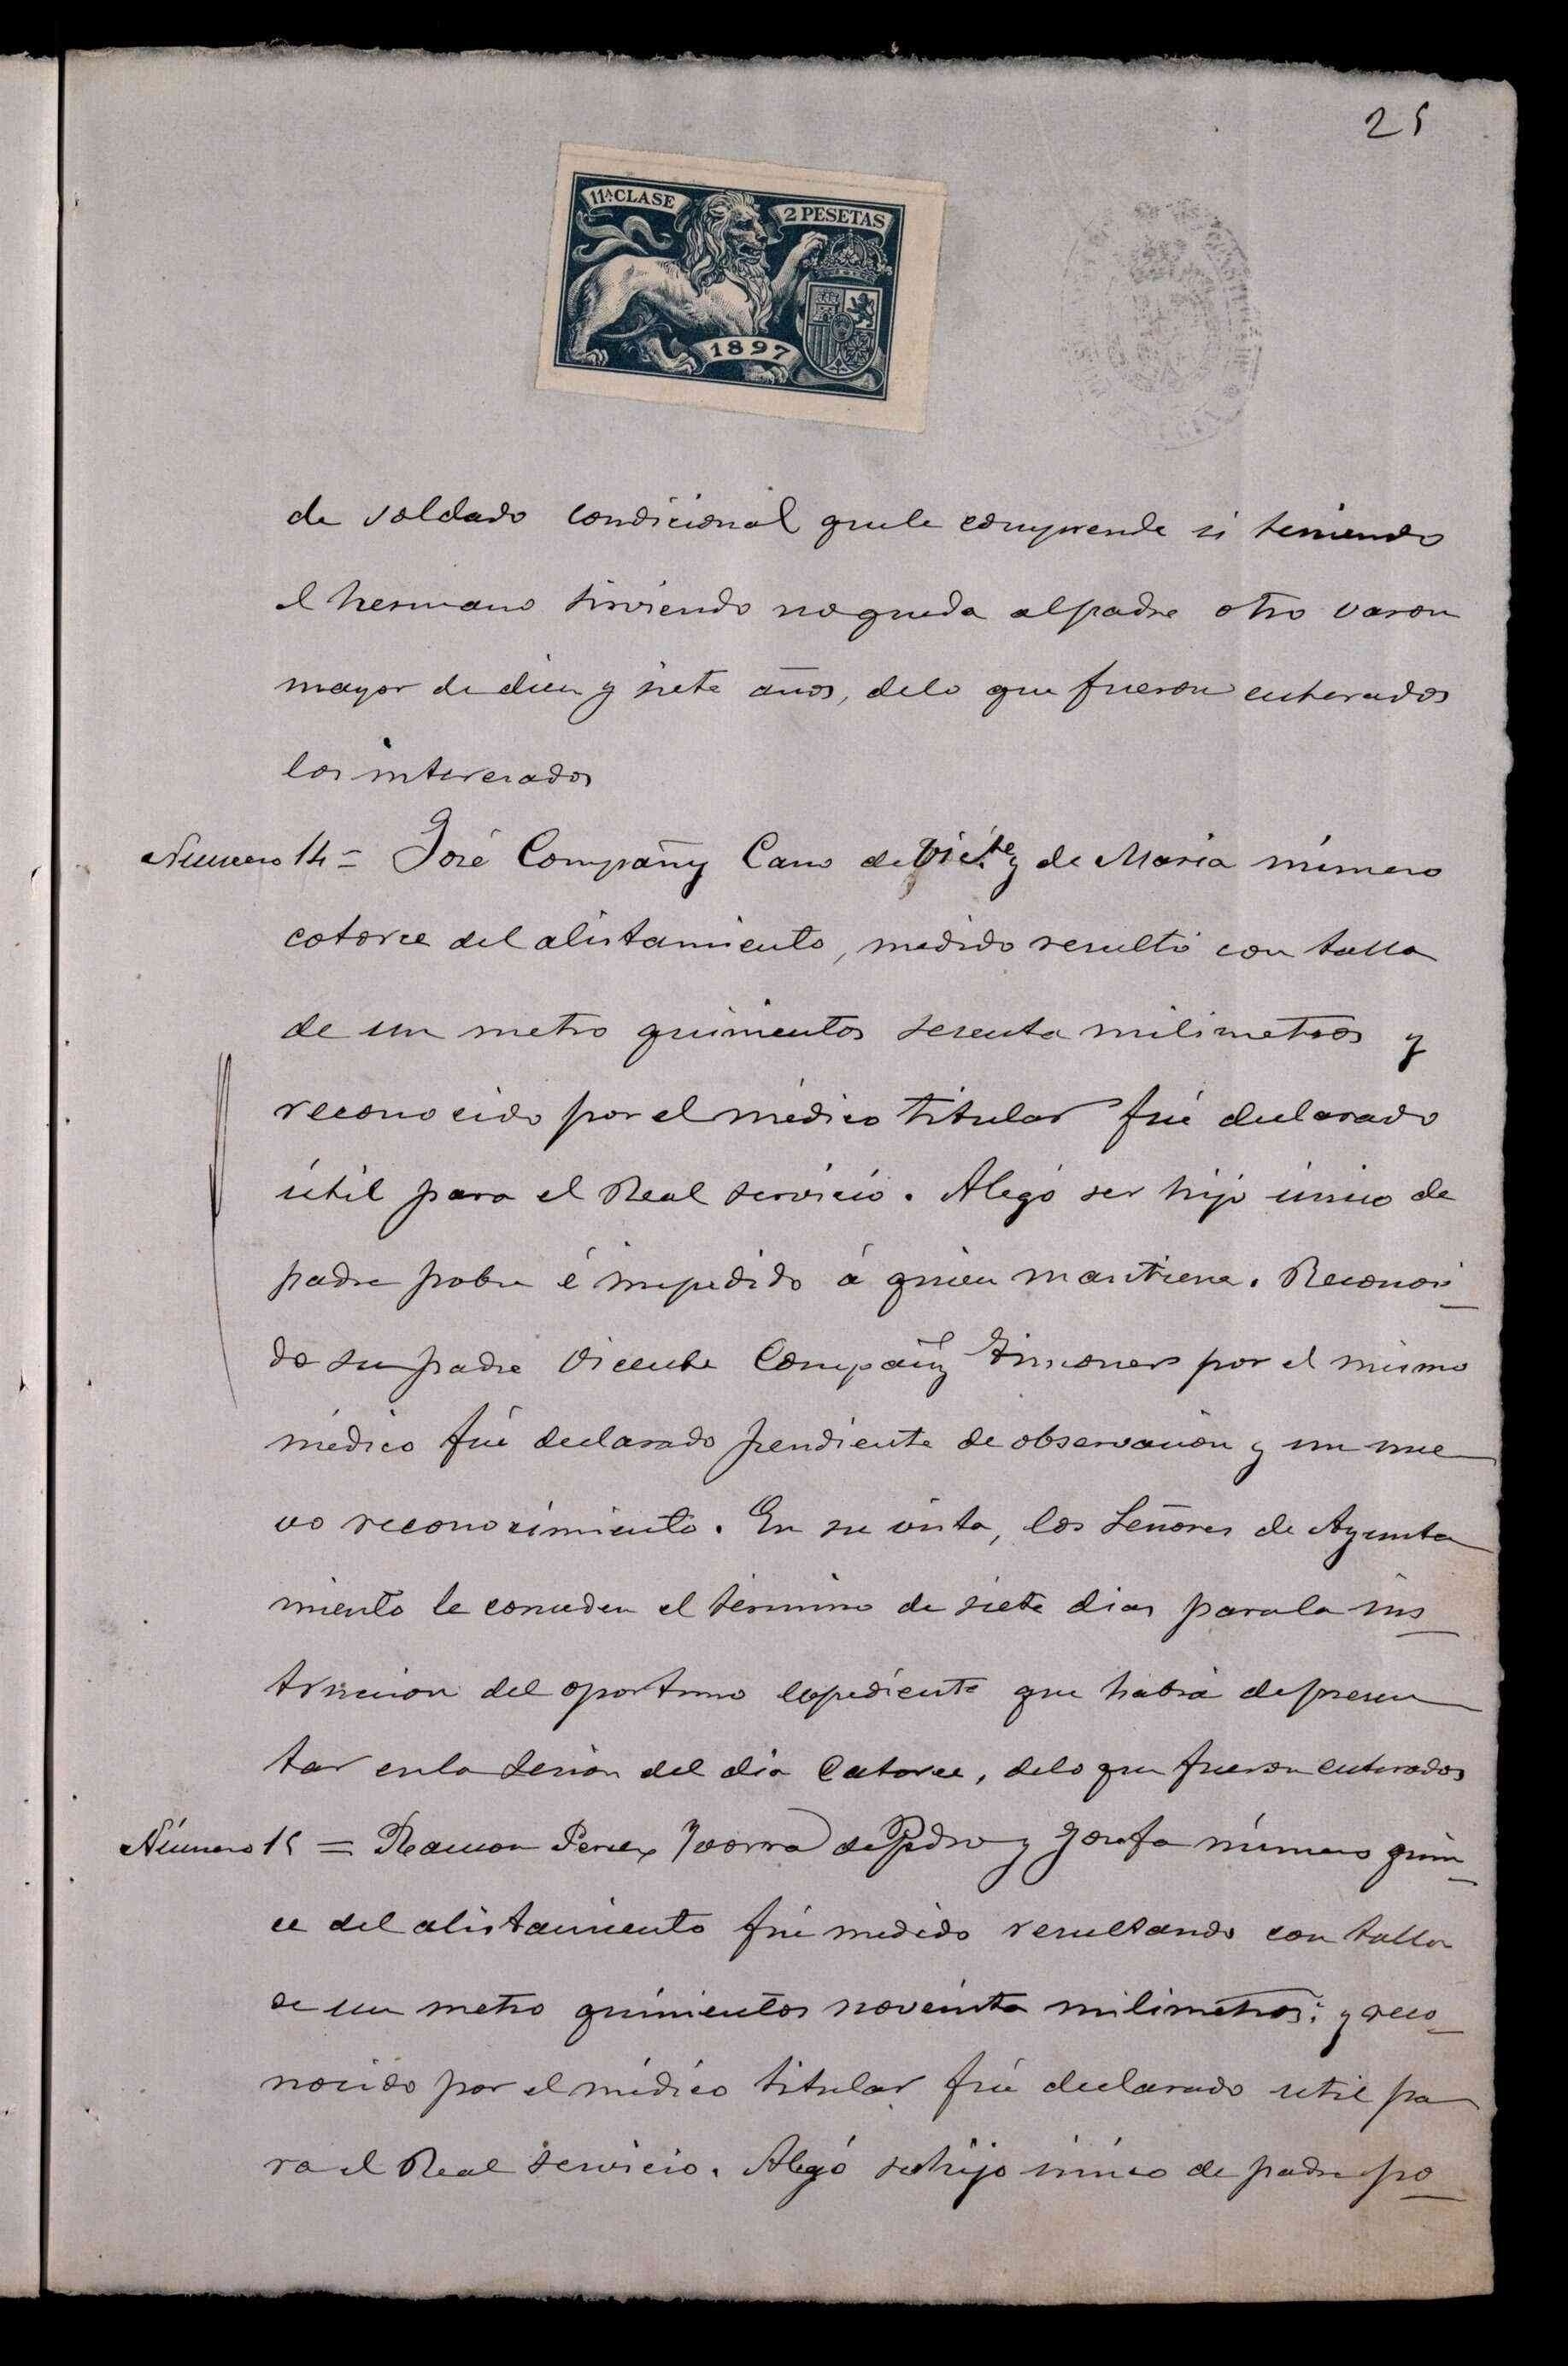 25
11ª CLASE
2 PESETAS
1897
de soldado condicional que le comprende si teniendo
el hermano sirviendo no queda al padre otro varon
mayor de diez y siete años, de lo que fueron enterados
los interesados
Número 14 = José Compañy Cano de Victe y de Maria número
catorce del alistamiento, medido resultó con talla
de un metro quinientos sesenta milimetros y
reconocido por el médico titular fué declarado
útil para el Real servicio. Alegó ser hijo único de
padre pobre é impedido á quien mantiene. Reconoci
do su padre Vicente Compañy por el mismo
médico fué declarado pendiente de observación y un nue
vo reconocimiento. En su vista, los Señores de Ayunta
miento le conceden el término de siete dias para la ins
trucción del oportuno expediente que habrá de presen
tar en la sesión del dia catorce, de lo que fueron enterados
Número 15 = Ramon Perez Yvorra de Pedro y Josefa número quin
ce del alistamiento fué medido resultando con talla
de un metro quinientos noventa milimetros: y reco
nocido por el médico titular fué declarado util pa
ra el Real servicio. Alegó ser hijo único de padre po